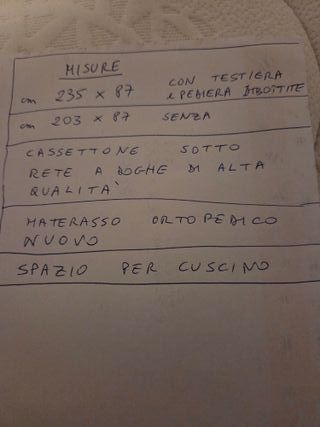 MISURE
cm 235 x 87 CON TESTIERA
e PEDIERA IMBOTTITE
cm 203 x 87 SENZA
CASSETTONE SOTTO
RETE A DOGHE DI ALTA
QUALITA'
MATERASSO ORTOPEDICO
NUOVO
SPAZIO PER CUSCINO